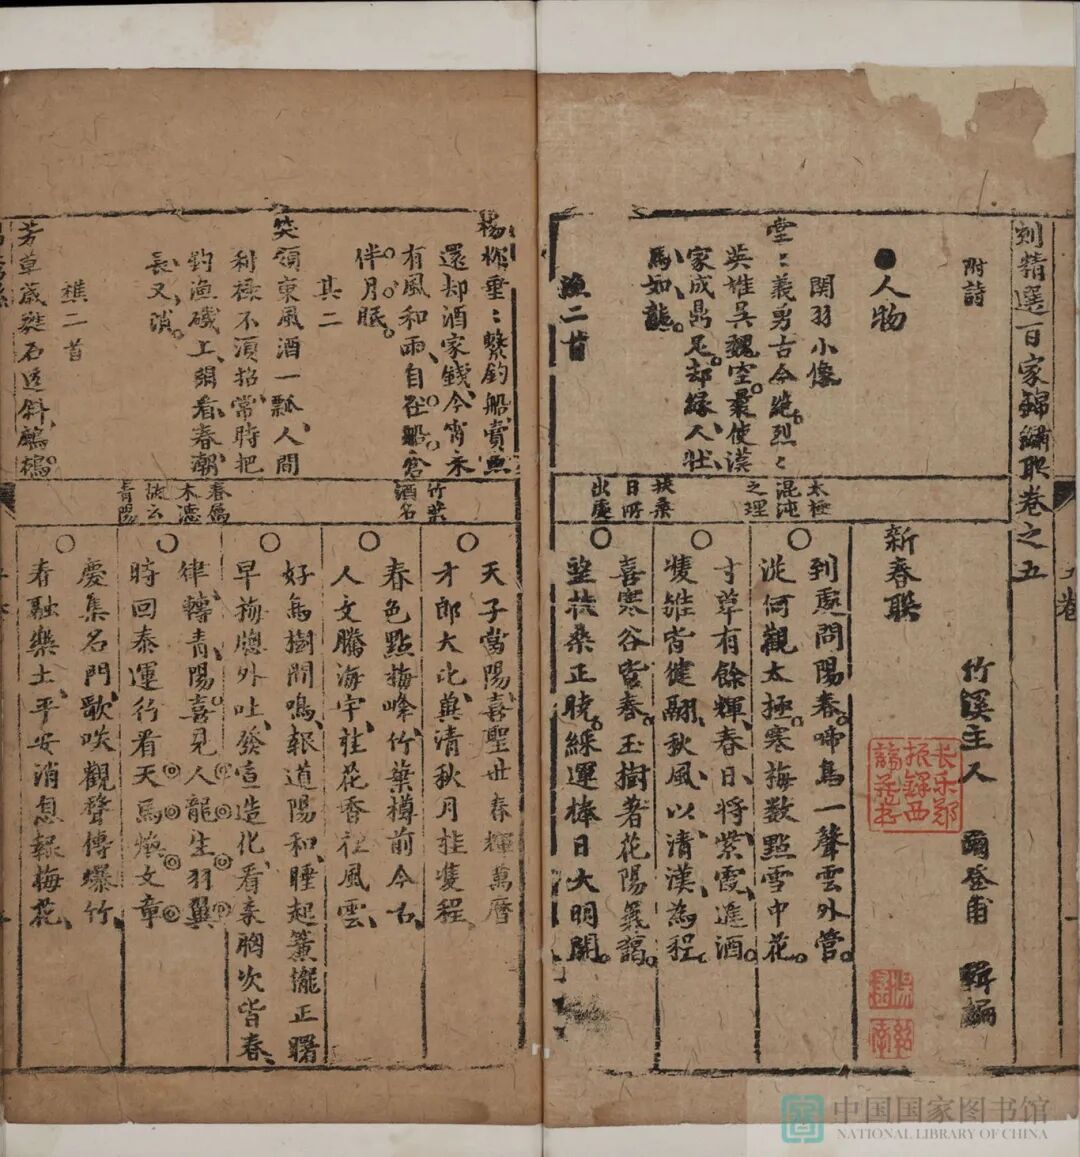 刻精選百家錦繡聯卷之五
附詩
●人物
関羽小像
堂〻義勇古今絶烈〻
英雄吳魏空最使漢
家成鼎足却緣人狀
馬如龍
漁二首
太極
混沌
之理
扶桑
日所
出處
竹溪主人 爾登甫 輯編
新春聯
到處問陽春啼鳥一聲雲外管
從何觀太極寒梅数點雪中花
寸草有餘輝春日將紫霞進酒
隻雏皆健翮秋風以清漢為程
喜寒谷皆春玉樹著花陽氣藹
望扶桑正曉綵運棒日大明開
長樂鄭
振鐸西
諦藏书
楊柳垂〻繫釣船賣魚
還却酒家錢今宵未
有風和雨自在船倉
伴月眠
其二
笑領東風酒一瓢人間
利祿不須招常時把
釣漁磯上閑看春潮
長又消
樵二首
芳草巖甦石逕斜鷓鴣
竹葉
酒名
春爲
木德
故云
青陽
天子當陽喜聖世春輝萬曆
才郎大比冀清秋月桂隻程
春色點梅峰竹葉樽前今古
人文騰海宇桂花香裡風雲
好鳥樹間鳴報道陽和睡起簾櫳正曙
早梅牕外吐發宣造化看來胸次皆春
律轉青陽喜見人龍生羽翼
時回泰運行看天馬煥文章
慶集名門歌吹觀聲傳爆竹
春融樂土平安消息報梅花
中国国家图书馆
NATIONAL LIBRARY OF CHINA